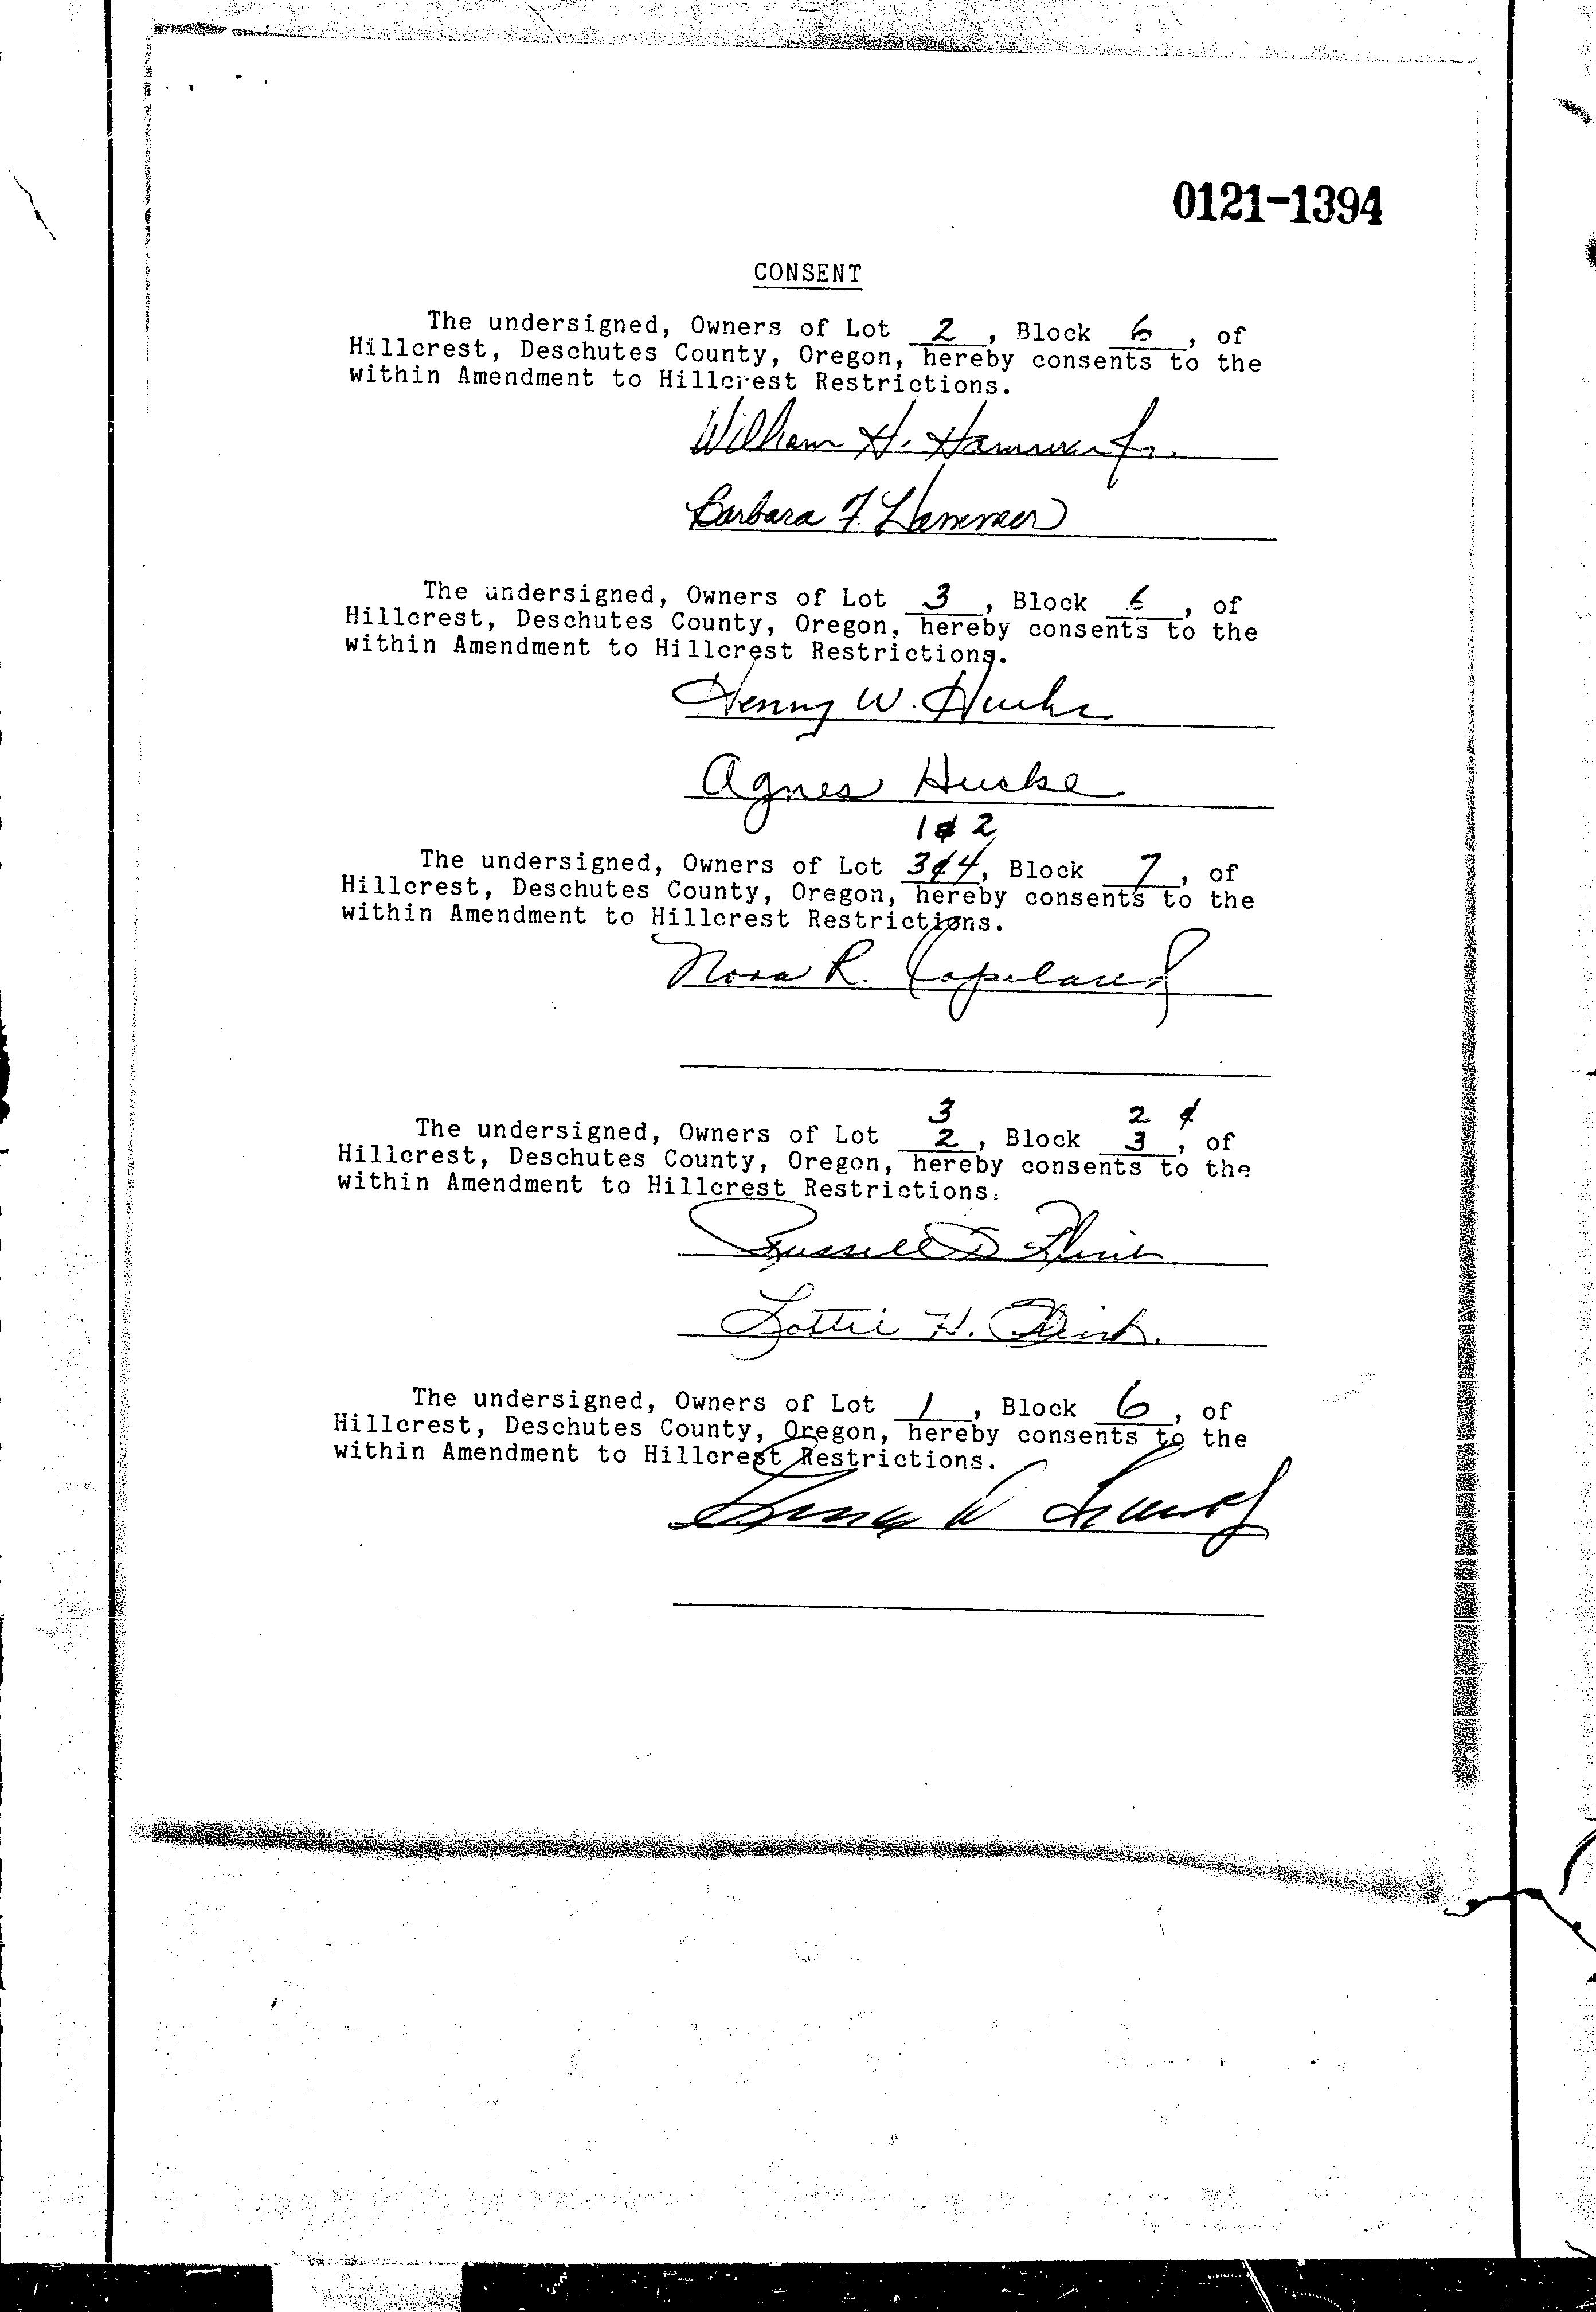 0121-1394
CONSENT
The undersigned, Owners of Lot 2, Block 6, of
Hillcrest, Deschutes County, Oregon, hereby consents to the
within Amendment to Hillcrest Restrictions.
William H. Hammer Jr.
Barbara F. Hammer
The undersigned, Owners of Lot 3, Block 6, of
Hillcrest, Deschutes County, Oregon, hereby consents to the
within Amendment to Hillcrest Restrictions.
Henry W. Hucke
Agnes Hucke
1 & 2
The undersigned, Owners of Lot 3 & 4, Block 7, of
Hillcrest, Deschutes County, Oregon, hereby consents to the
within Amendment to Hillcrest Restrictions.
Nora R. Copeland
3 2 &
The undersigned, Owners of Lot 2, Block 3, of
Hillcrest, Deschutes County, Oregon, hereby consents to the
within Amendment to Hillcrest Restrictions.
Russell D Flint
Lottie H. Flint.
The undersigned, Owners of Lot 1, Block 6, of
Hillcrest, Deschutes County, Oregon, hereby consents to the
within Amendment to Hillcrest Restrictions.
W